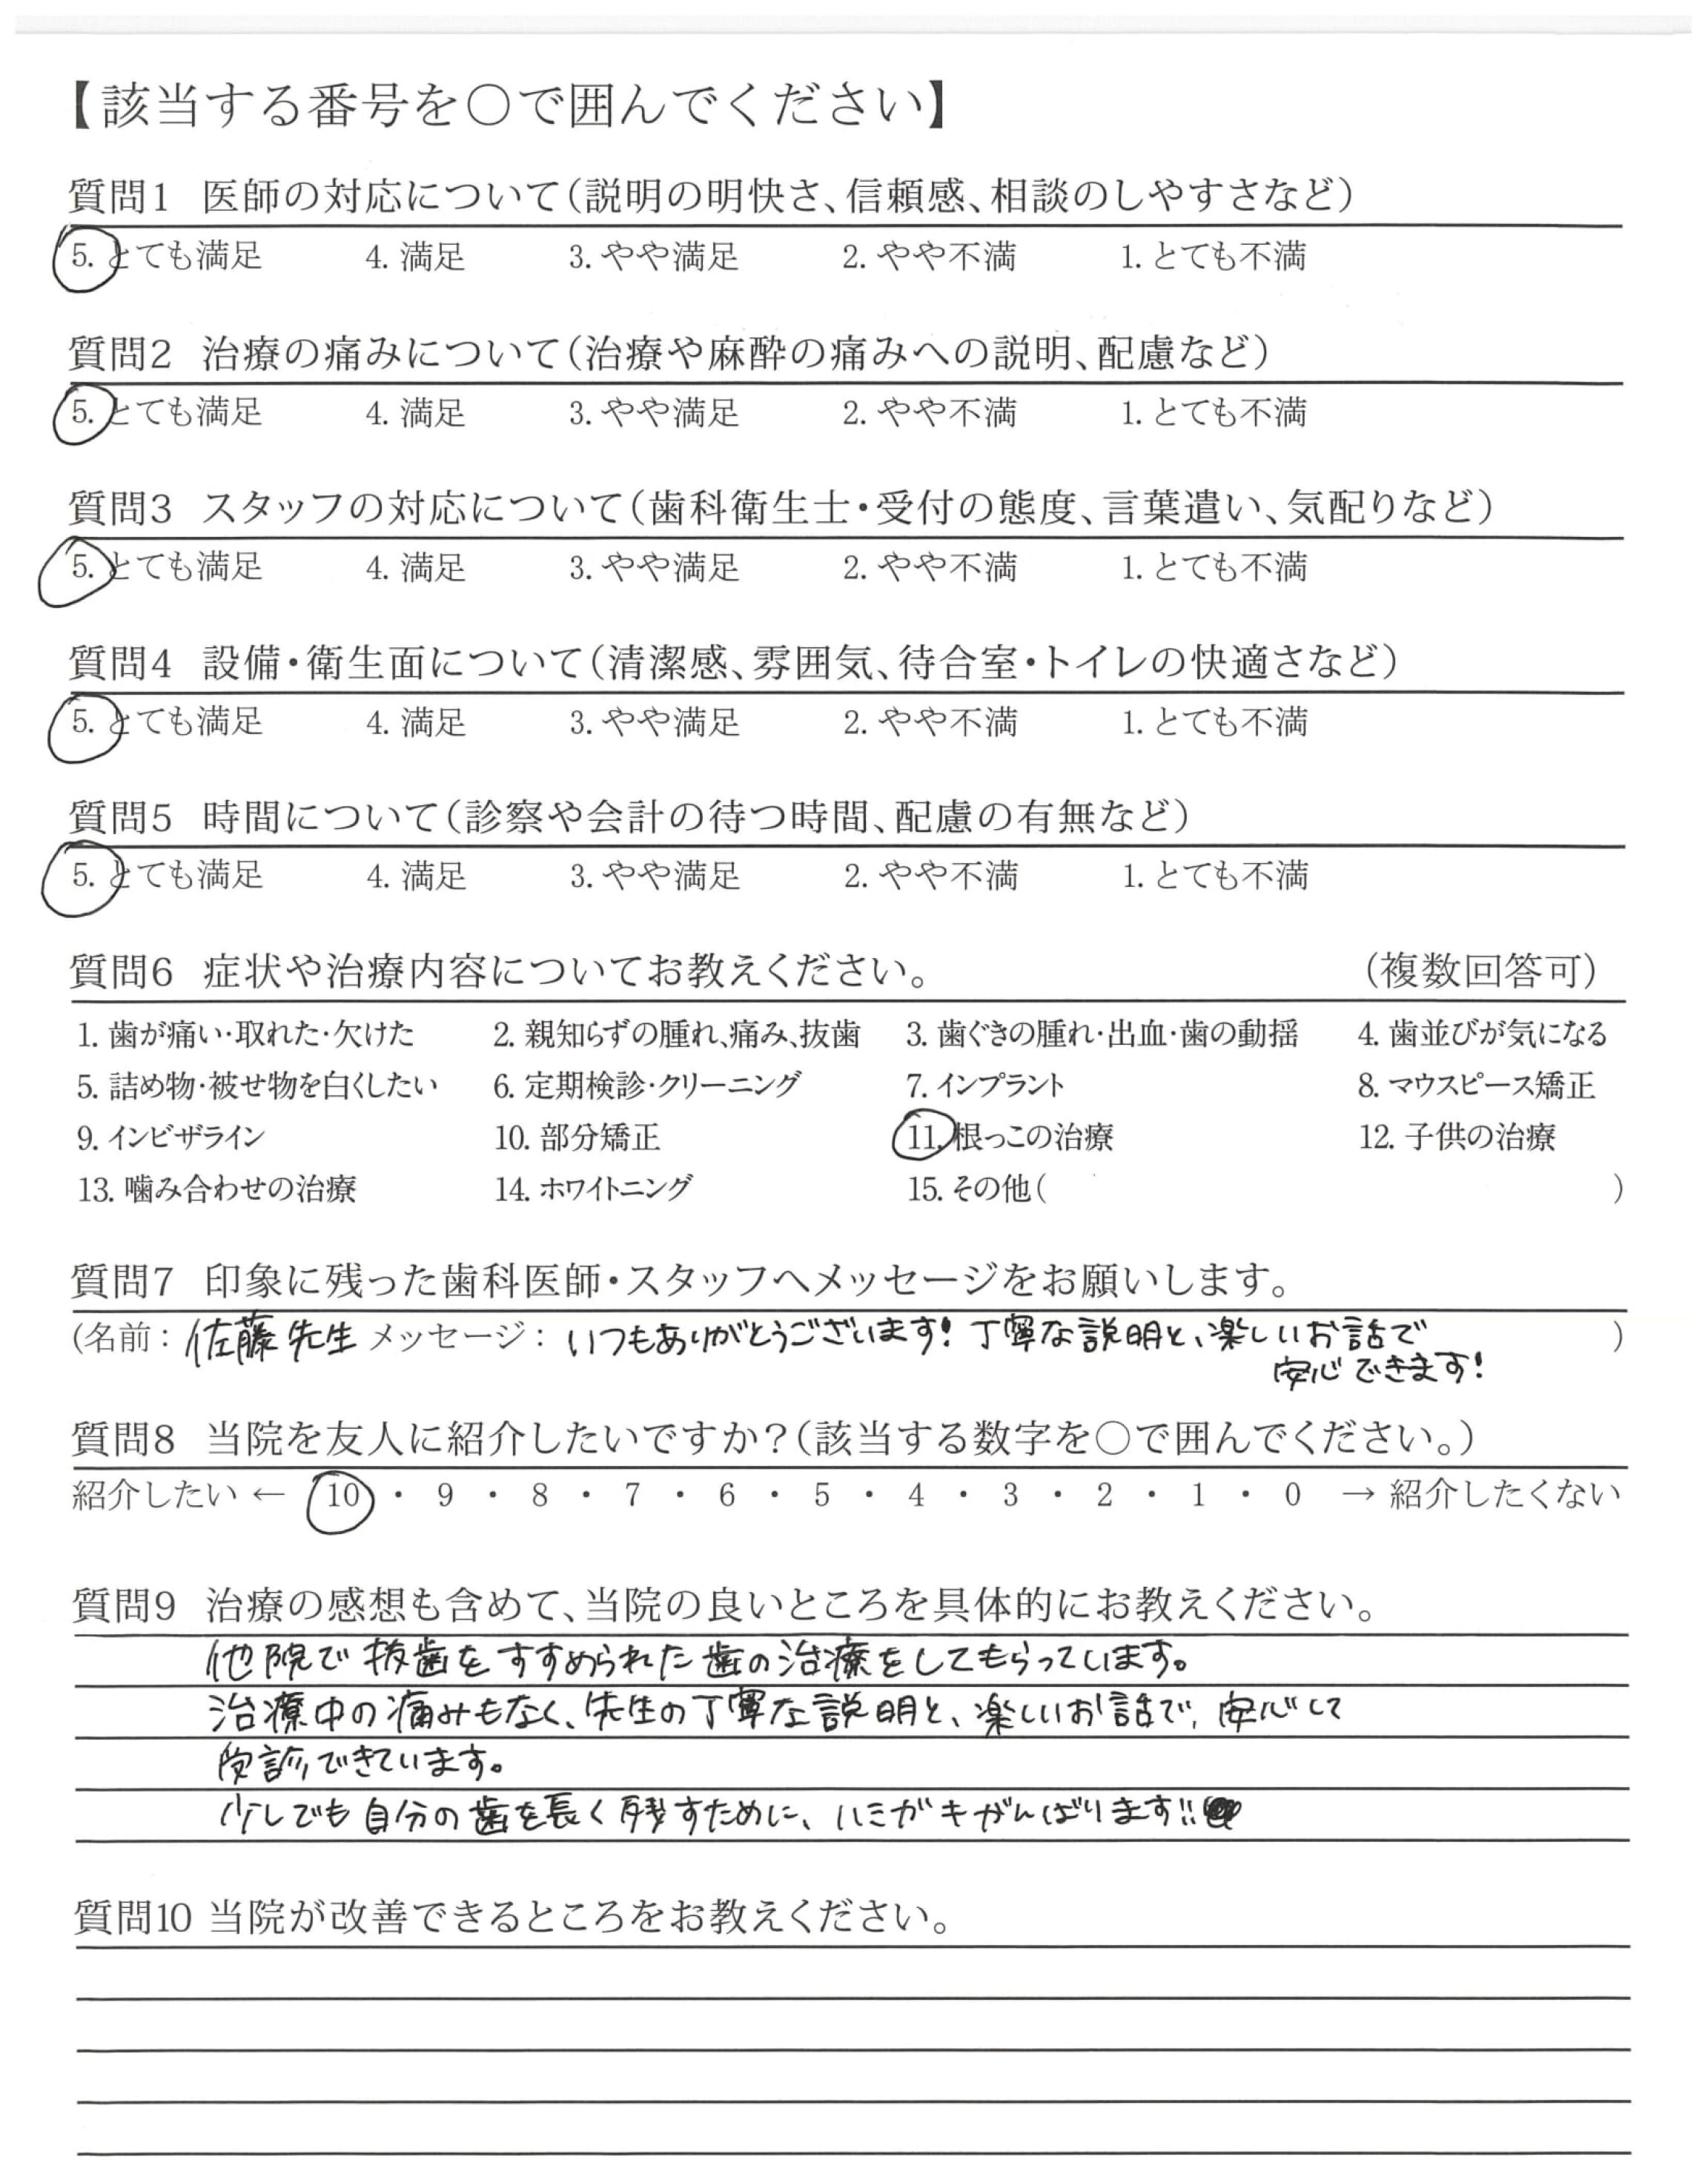 【該当する番号を○で囲んでください】
質問1 医師の対応について(説明の明快さ、信頼感、相談のしやすさなど)
5. とても満足 4. 満足 3. やや満足 2. やや不満 1. とても不満
質問2 治療の痛みについて(治療や麻酔の痛みへの説明、配慮など)
5. とても満足 4. 満足 3. やや満足 2. やや不満 1. とても不満
質問3 スタッフの対応について(歯科衛生士・受付の態度、言葉遣い、気配りなど)
5. とても満足 4. 満足 3. やや満足 2. やや不満 1. とても不満
質問4 設備・衛生面について(清潔感、雰囲気、待合室・トイレの快適さなど)
5. とても満足 4. 満足 3. やや満足 2. やや不満 1. とても不満
質問5 時間について(診察や会計の待つ時間、配慮の有無など)
5. とても満足 4. 満足 3. やや満足 2. やや不満 1. とても不満
質問6 症状や治療内容についてお教えください。 (複数回答可)
1. 歯が痛い・取れた・欠けた 2. 親知らずの腫れ、痛み、抜歯 3. 歯ぐきの腫れ・出血・歯の動揺 4. 歯並びが気になる
5. 詰め物・被せ物を白くしたい 6. 定期検診・クリーニング 7. インプラント 8. マウスピース矯正
9. インビザライン 10. 部分矯正 11. 根っこの治療 12. 子供の治療
13. 噛み合わせの治療 14. ホワイトニング 15. その他( )
質問7 印象に残った歯科医師・スタッフへメッセージをお願いします。
(名前: 佐藤先生 メッセージ: いつもありがとうございます! 丁寧な説明と、楽しいお話で )
安心できます!
質問8 当院を友人に紹介したいですか?(該当する数字を○で囲んでください。)
紹介したい ← 10 ・ 9 ・ 8 ・ 7 ・ 6 ・ 5 ・ 4 ・ 3 ・ 2 ・ 1 ・ 0 → 紹介したくない
質問9 治療の感想も含めて、当院の良いところを具体的にお教えください。
他院で抜歯をすすめられた歯の治療をしてもらっています。
治療中の痛みもなく、先生の丁寧な説明と、楽しいお話で、安心して
受診できています。
少しでも自分の歯を長く残すために、ハミガキがんばります!!
質問10 当院が改善できるところをお教えください。